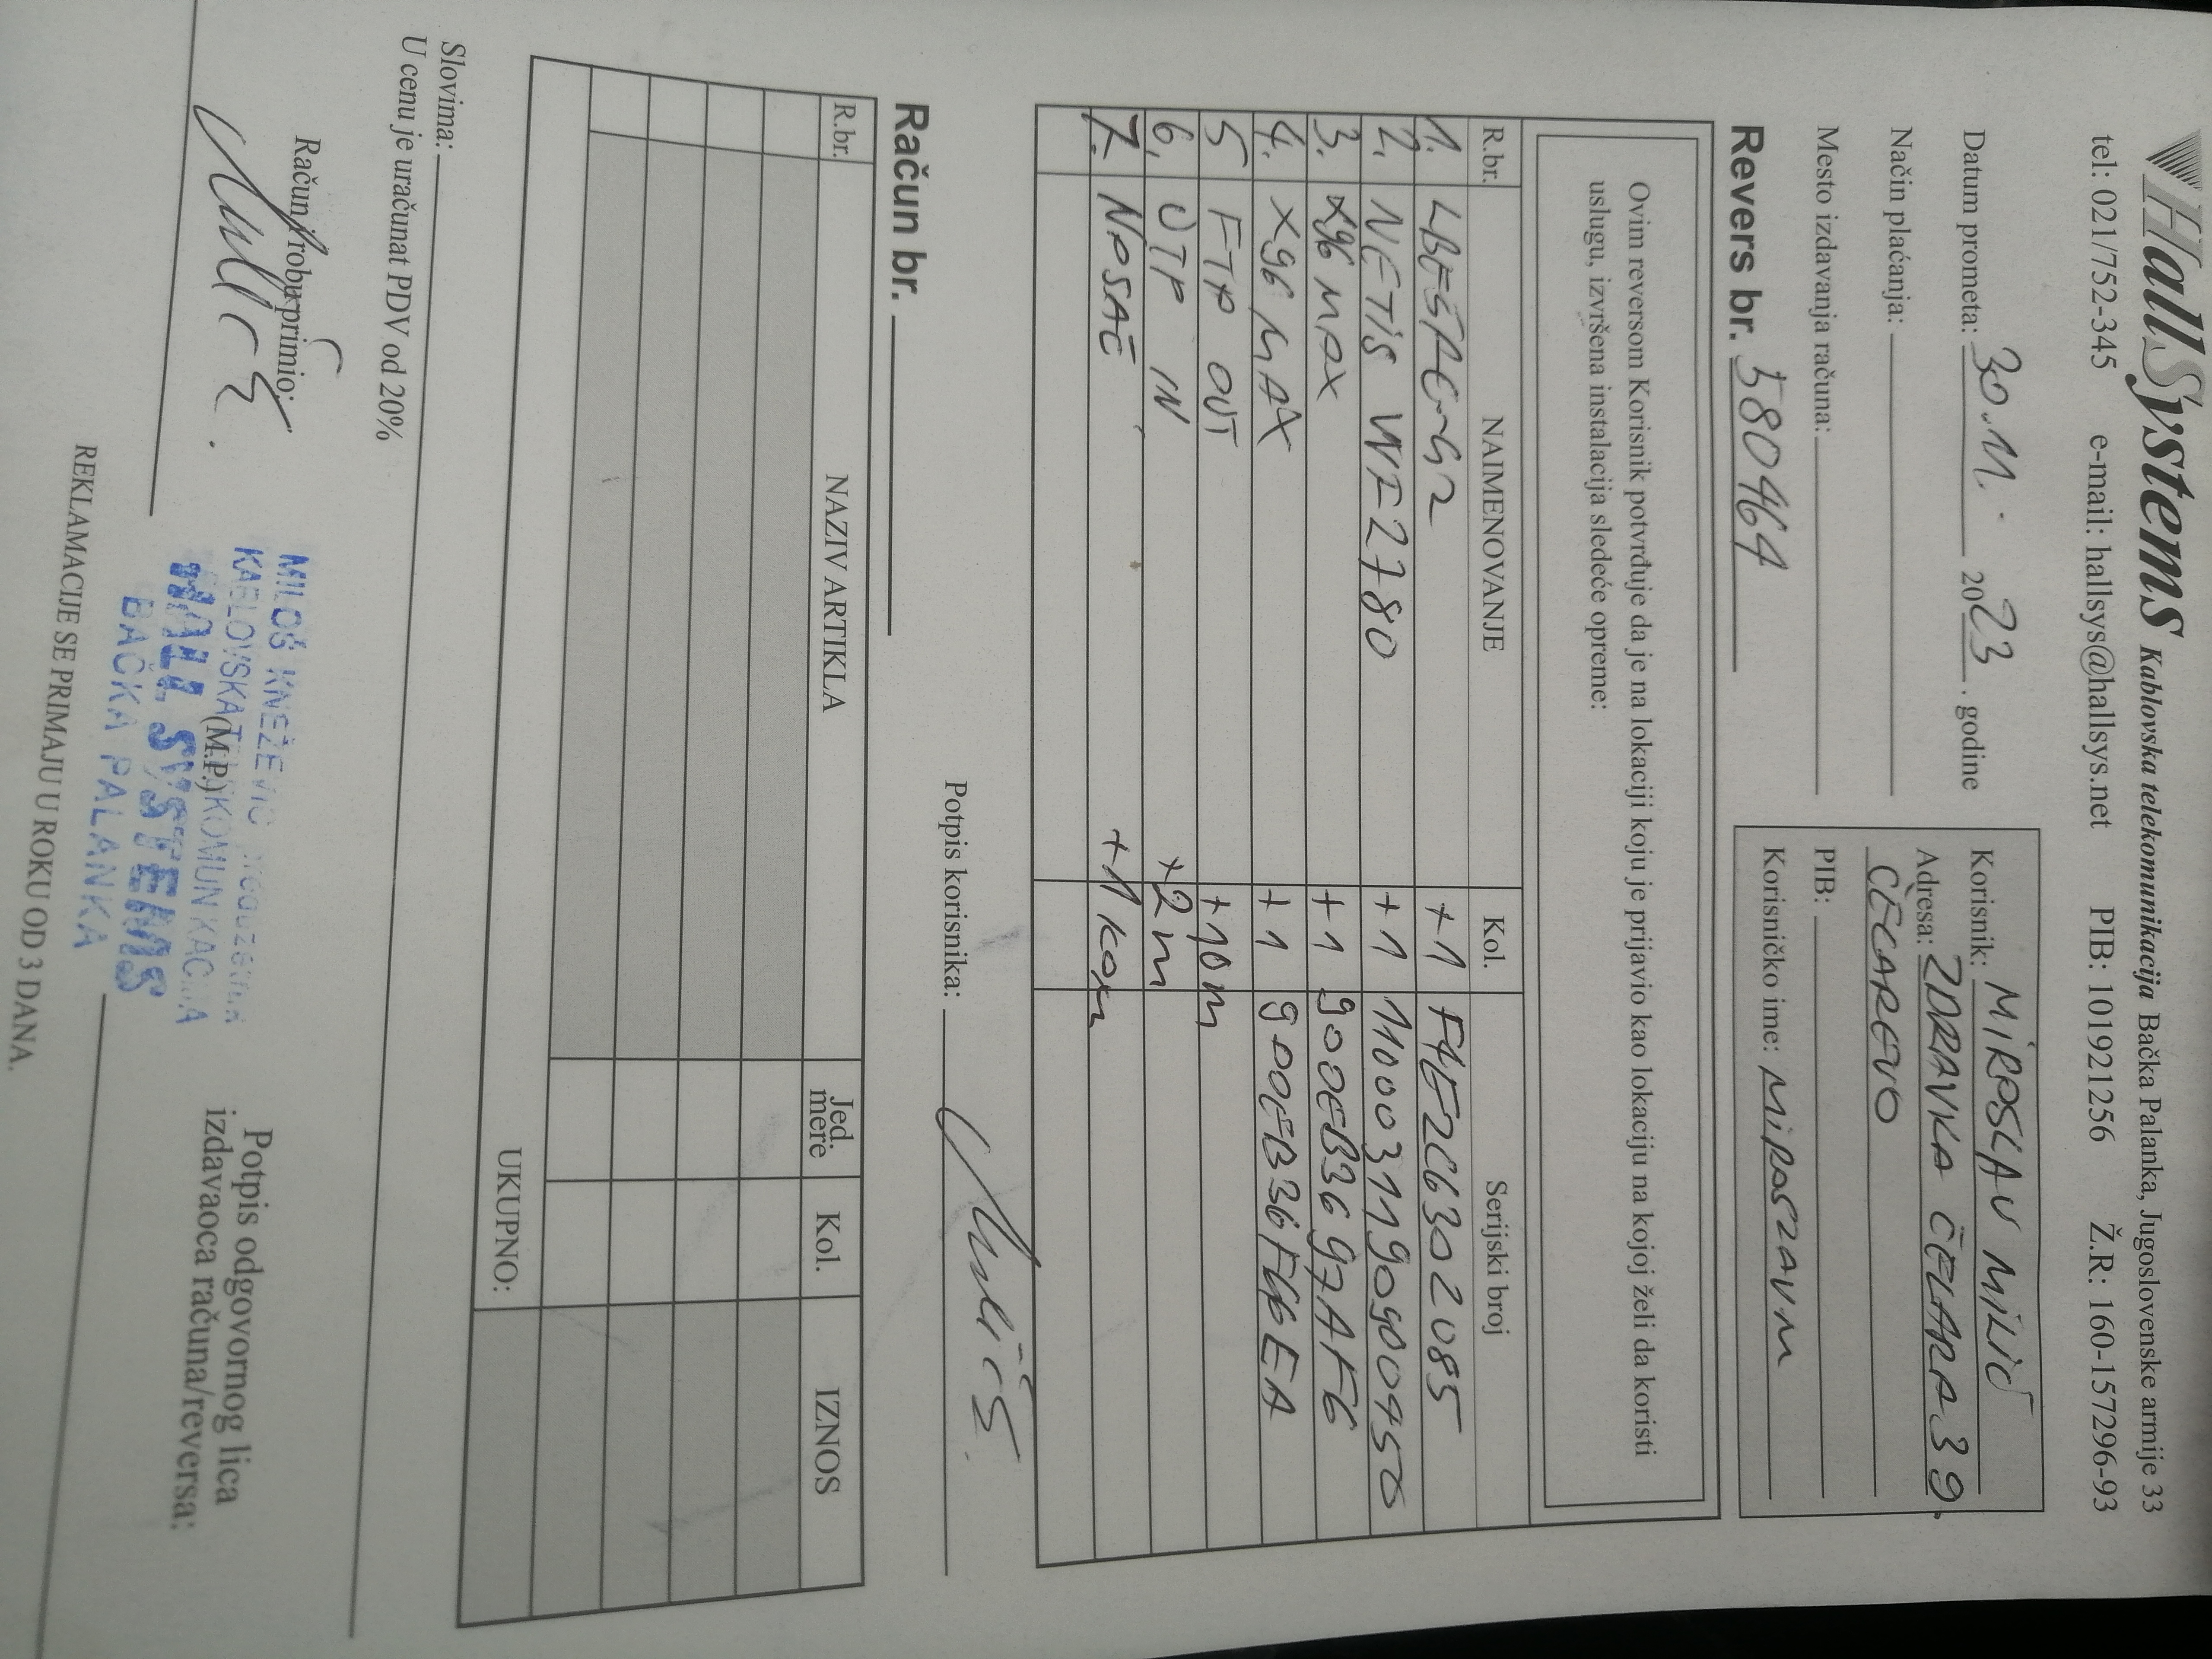 HallSystems Kablovska telekomunikacija Bačka Palanka, Jugoslovenske armije 33
tel: 021/752-345 e-mail: hallsys@hallsys.net PIB: 101921256 Ž.R: 160-157296-93
Datum prometa: 30.11. 2023. godine
Način plaćanja:
Mesto izdavanja računa:
Revers br. 580464
Korisnik: MIROSLAV MILIĆ
Adresa: ZDRAVKA ČELARA 39
ČELAREVO
PIB:
Korisničko ime: MIROSLAVM
Ovim reversom Korisnik potvrđuje da je na lokaciji koju je prijavio kao lokaciju na kojoj želi da koristi
uslugu, izvršena instalacija sledeće opreme:
R.br. NAIMENOVANJE Kol. Serijski broj
1. +1 F4E2C6302085
2. NETIS WF2780 +1 1100031190900450
3. X96 MAX +1 900EB3697AF6
4. X96 MAX +1
5 FTP OUT +10m
6. UTP IN +2m
7. NOSAČ +1 kom
Potpis korisnika:
Račun br.
R.br. NAZIV ARTIKLA Jed. mere Kol. IZNOS
UKUPNO:
Slovima:
U cenu je uračunat PDV od 20%
Račun/robu primio:
MILOŠ KNEŽEVIĆ
(M.P.)
HALL SYSTEMS
BAČKA PALANKA
Potpis odgovornog lica
izdavaoca računa/reversa:
REKLAMACIJE SE PRIMAJU U ROKU OD 3 DANA.